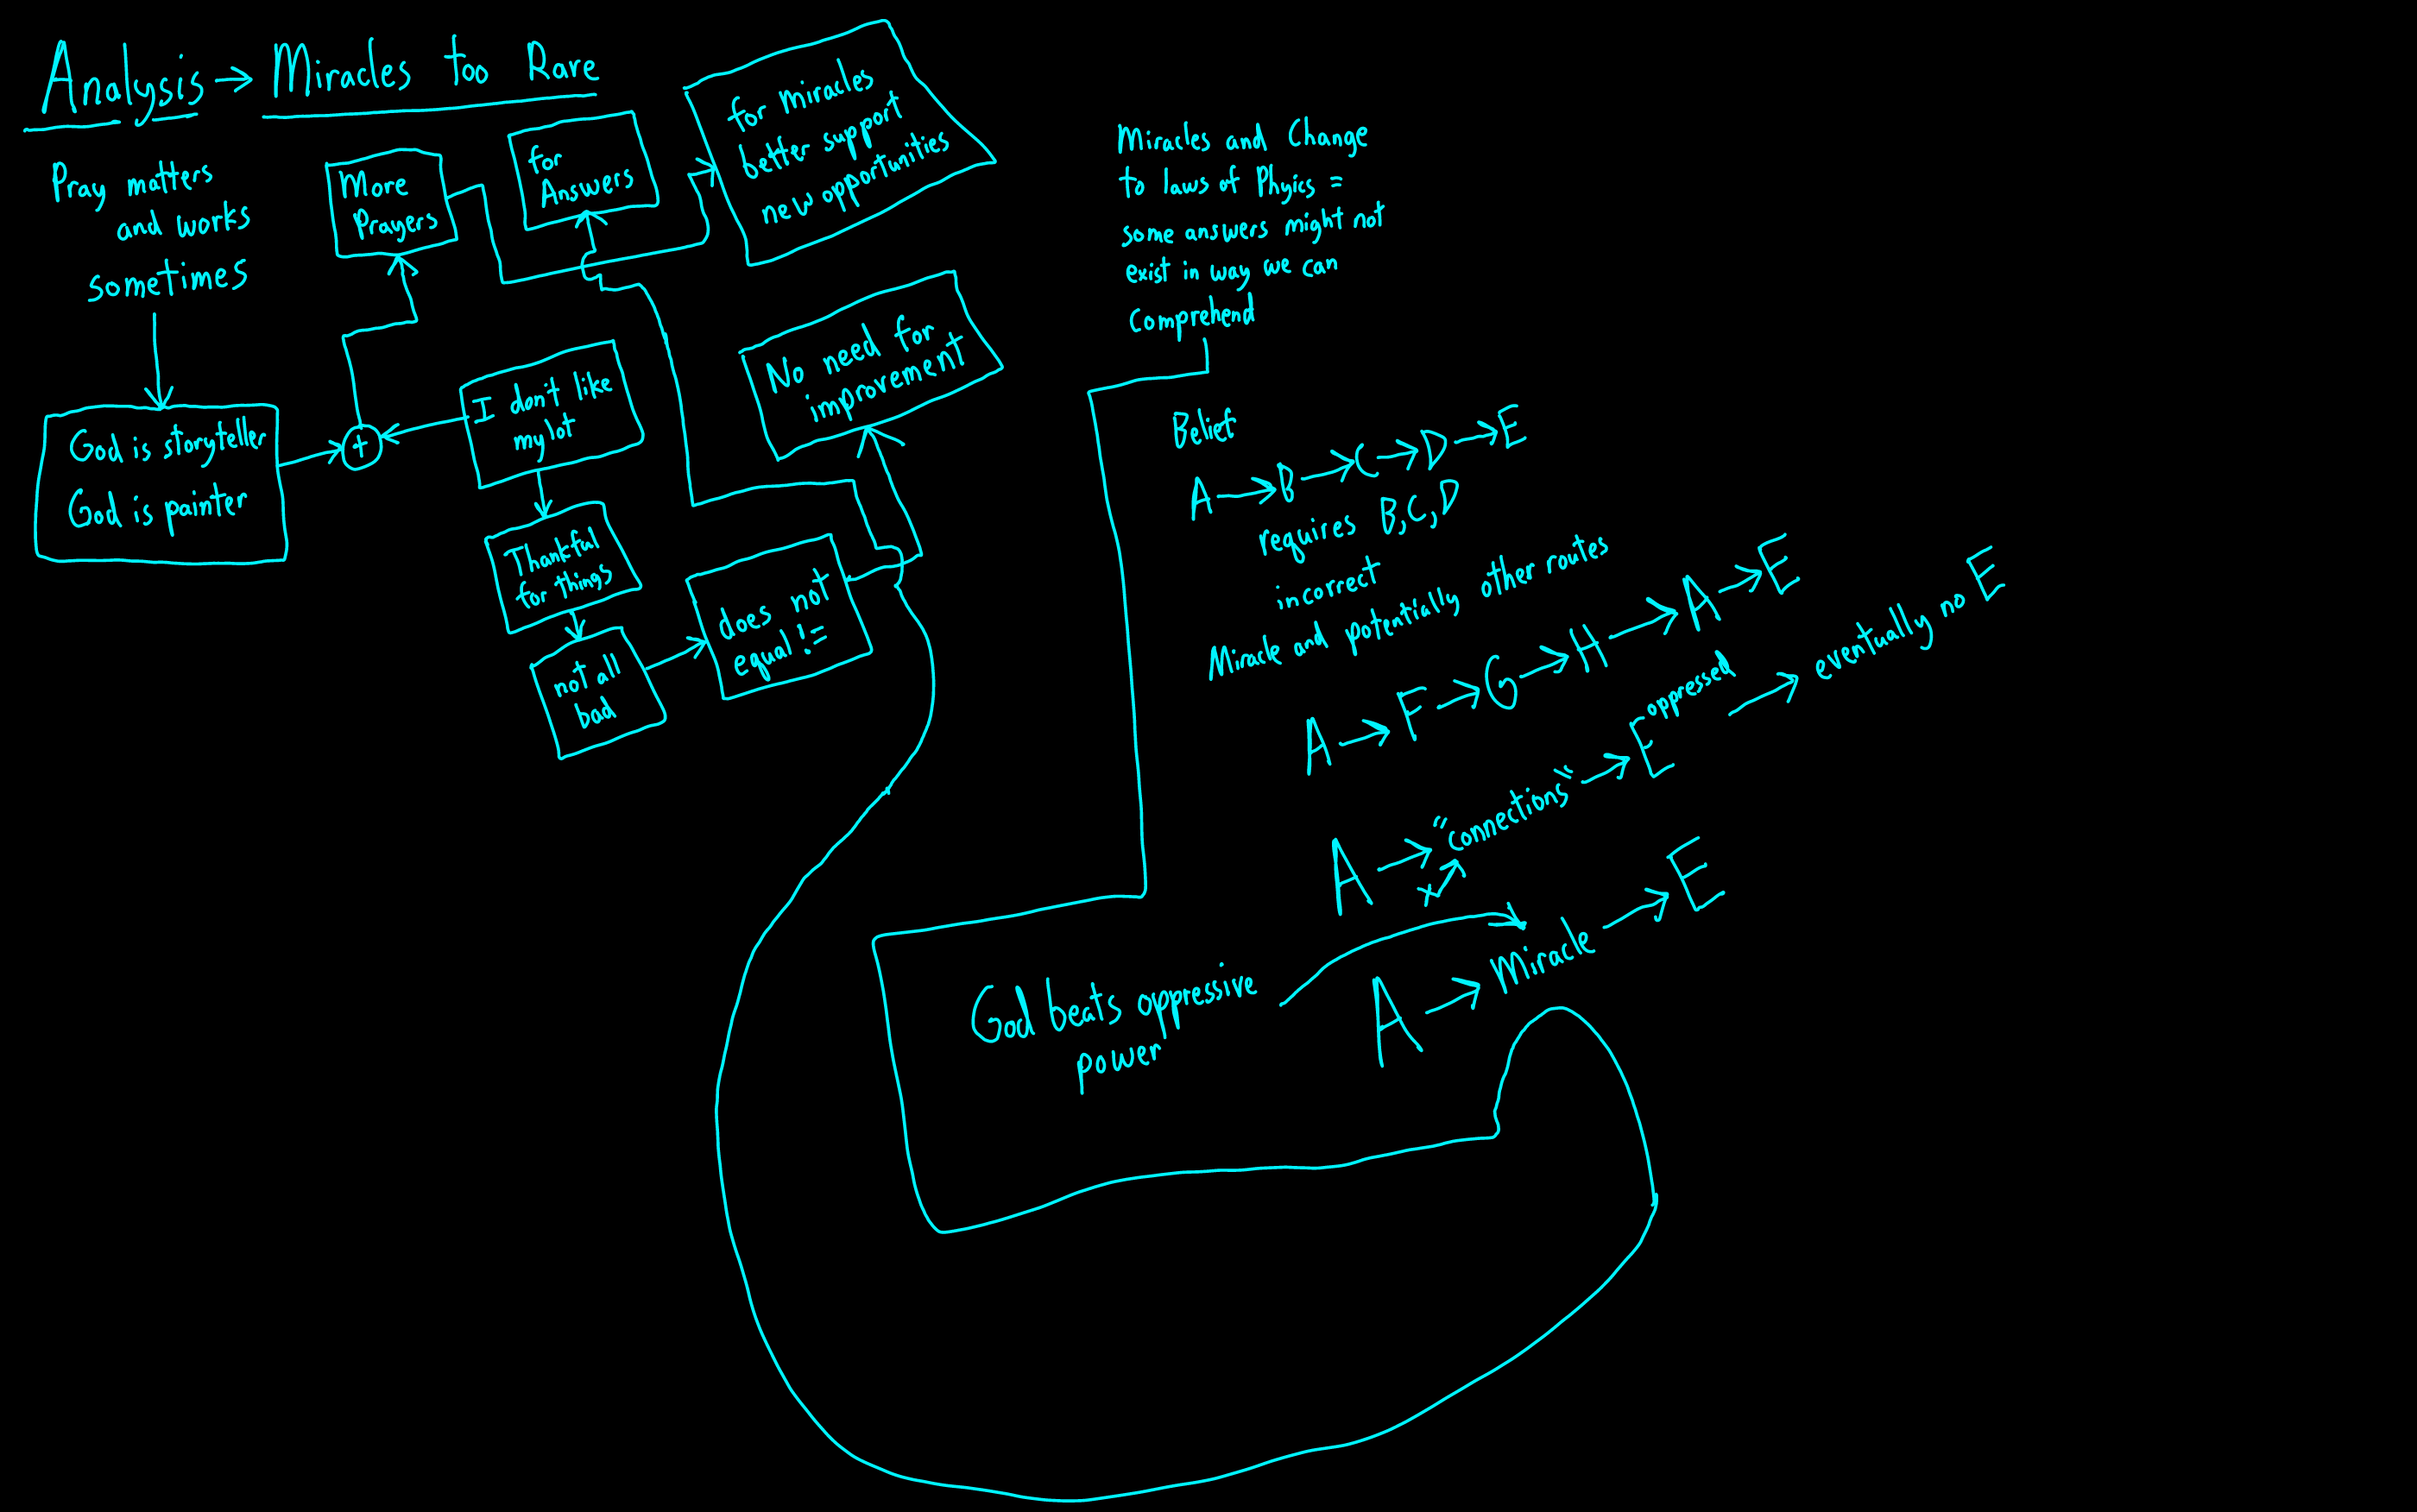 Analysis → Miracles too Rare
Pray matters
and works
sometimes
God is storyteller
God is painter
+
More
Prayers
for
Answers
for miracles
better support
new opportunities
I don't like
my lot
Thankful
for things
not all
bad
does not
equal !=
No need for
improvement
Miracles and Change
to laws of Phyics =
some answers might not
exist in way we can
Comprehend
Belief
A → B → C → D → E
requires B, C, D
incorrect
Miracle and potentially other routes
A → F → G → H → A → E
A → "connections" → E oppressed → eventually no E
+
God beats oppressive
power
A → Miracle → E